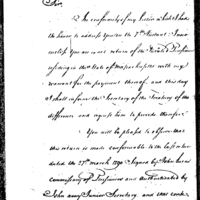 Sir,
In conformity of my Letter which I had
the honor to address you on the 7th Instant I now
enclose you an return of the Invalid Pensioners
residing in the State of Massachusetts with my
warrant for the payment thereof, and this day
I shall inform the Secretary of the Treasury of the
difference and request him to provide therefor.
You will be pleased to observe that
this return is made conformable to the last one
dated the 27th March 1790 signed by John Lucas
Commissary of Pensioners and Authenticated by
John Avery Junior Secretary, and that